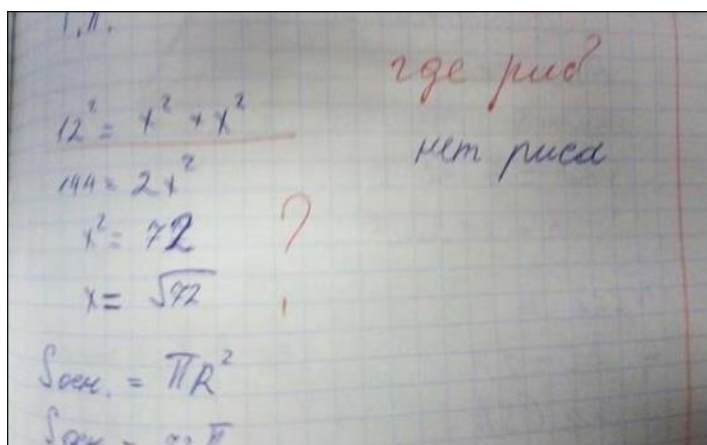 12² = x² + x²
144 = 2x²
x² = 72
x = √72
?
Sосн. = πR²
где рис?
нет риса